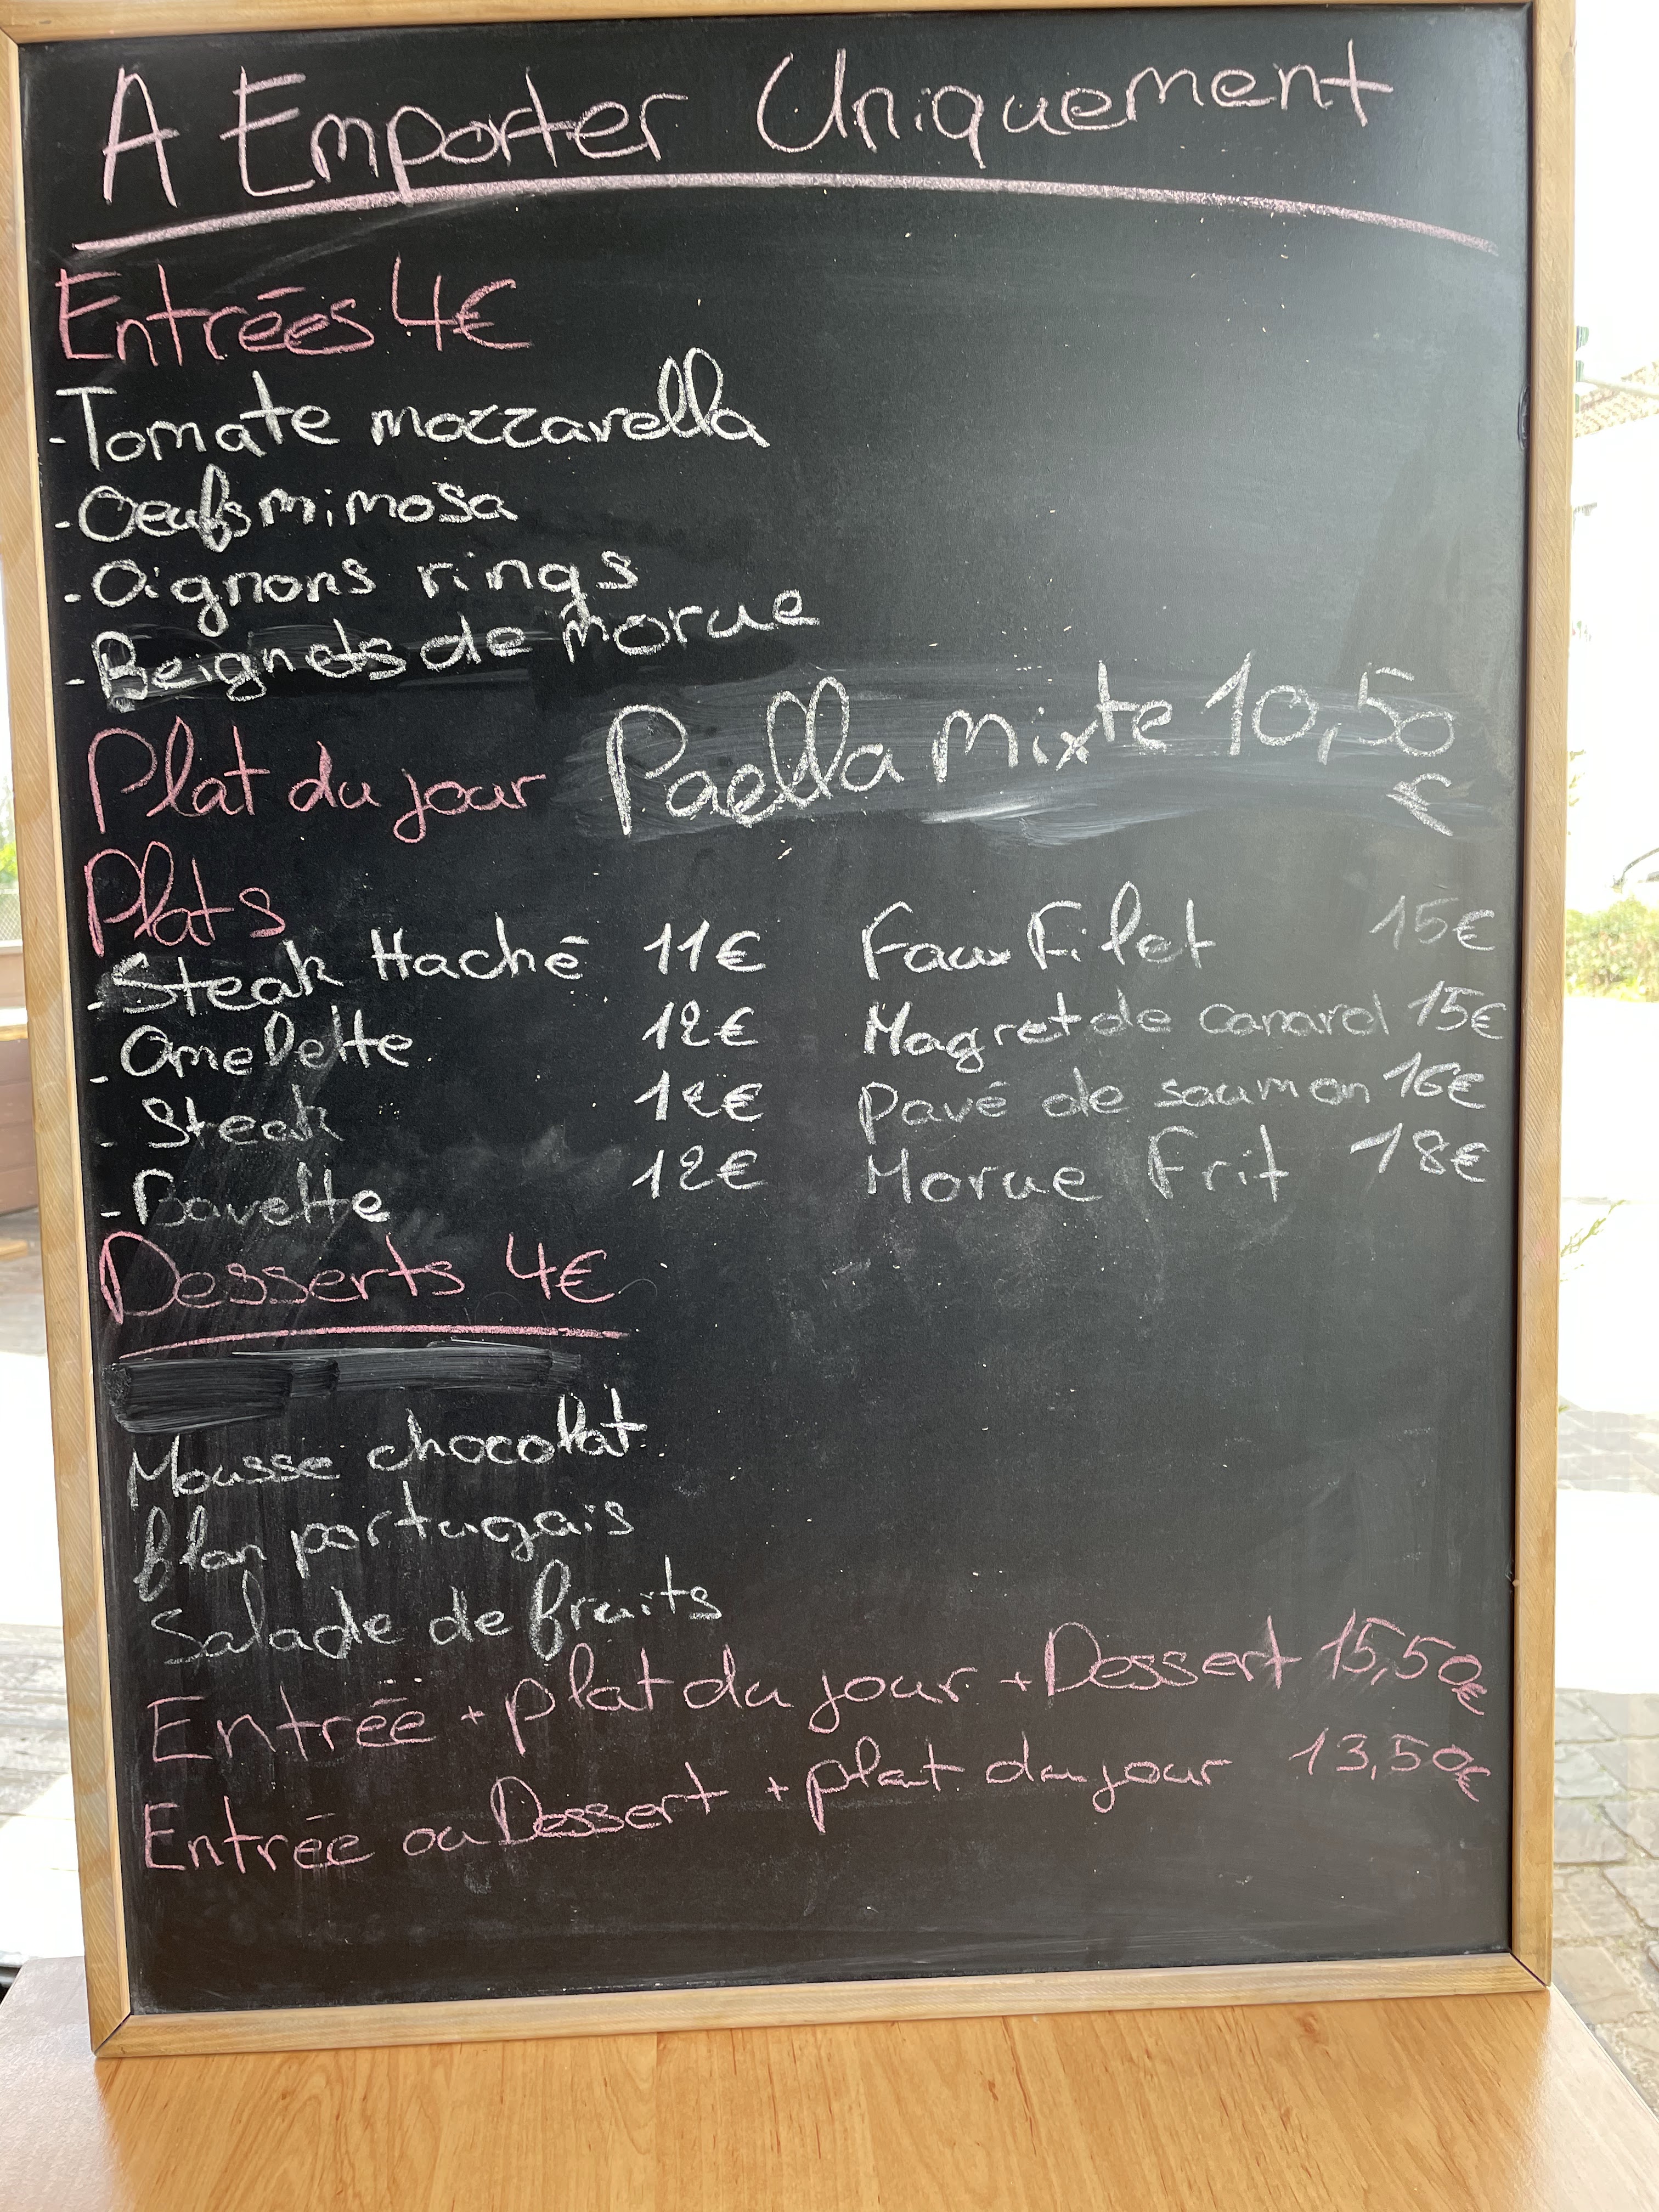 A Emporter Uniquement
Entrées 4€
-Tomate mozzarella
-Oeufs mimosa
-Oignons rings
-Beignets de morue
Plat du jour Paella mixte 10,50
€
Plats
-Steak Haché 11€ Faux Filet 15€
-Omelette 12€ Magret de canard 15€
-Steak 12€ Pavé de saumon 16€
-Bavette 12€ Morue Frit 18€
Desserts 4€
Mousse chocolat
flan portugais
Salade de fruits
Entrée + plat du jour + Dessert 15,50€
Entrée ou Dessert + plat du jour 13,50€